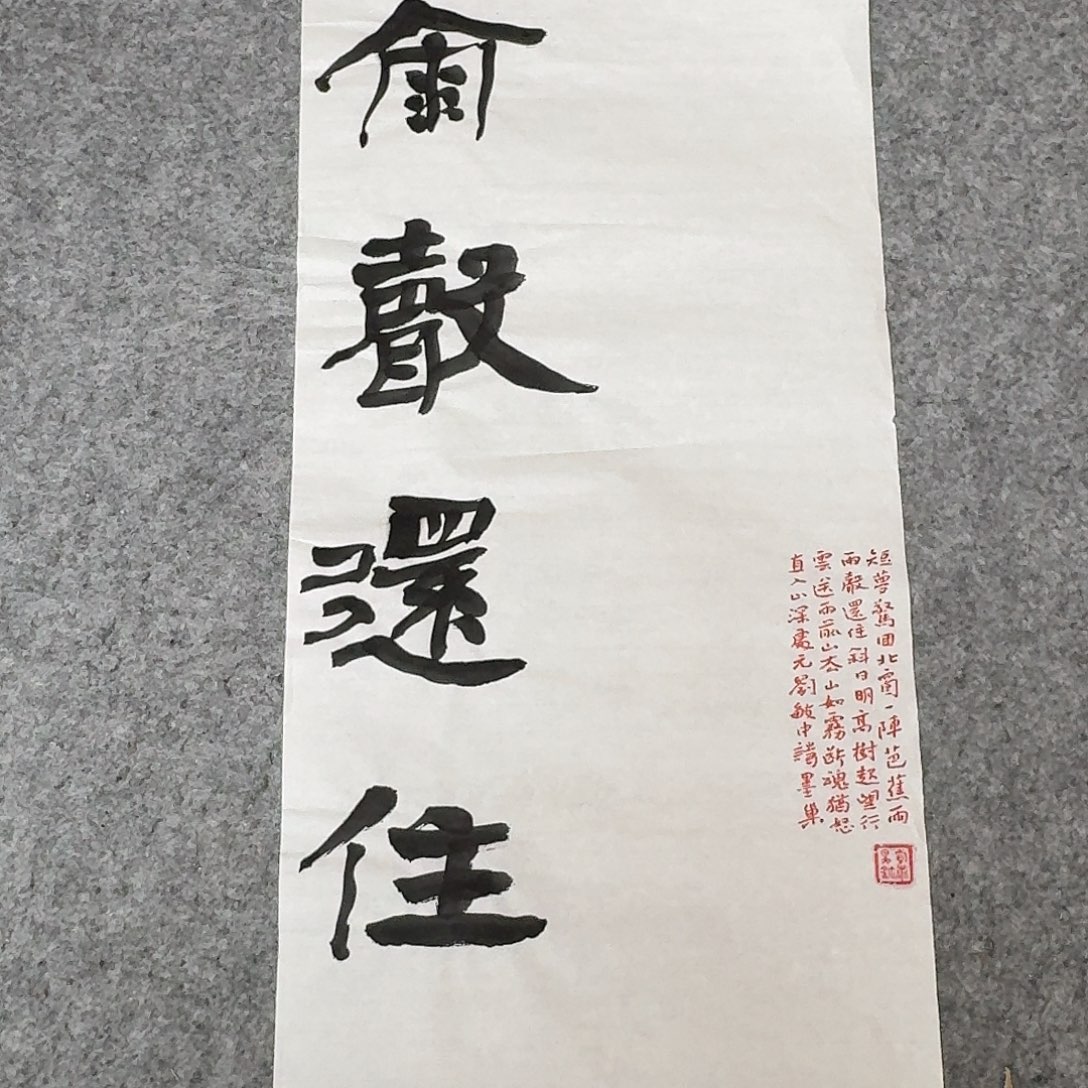 雨聲還住
短夢驚回北窗一陣芭蕉雨
雨聲還住斜日明高樹起望行
雲送雨前山去山如霧斷魂猶怒
直入山深處元劉敏中詩墨巢